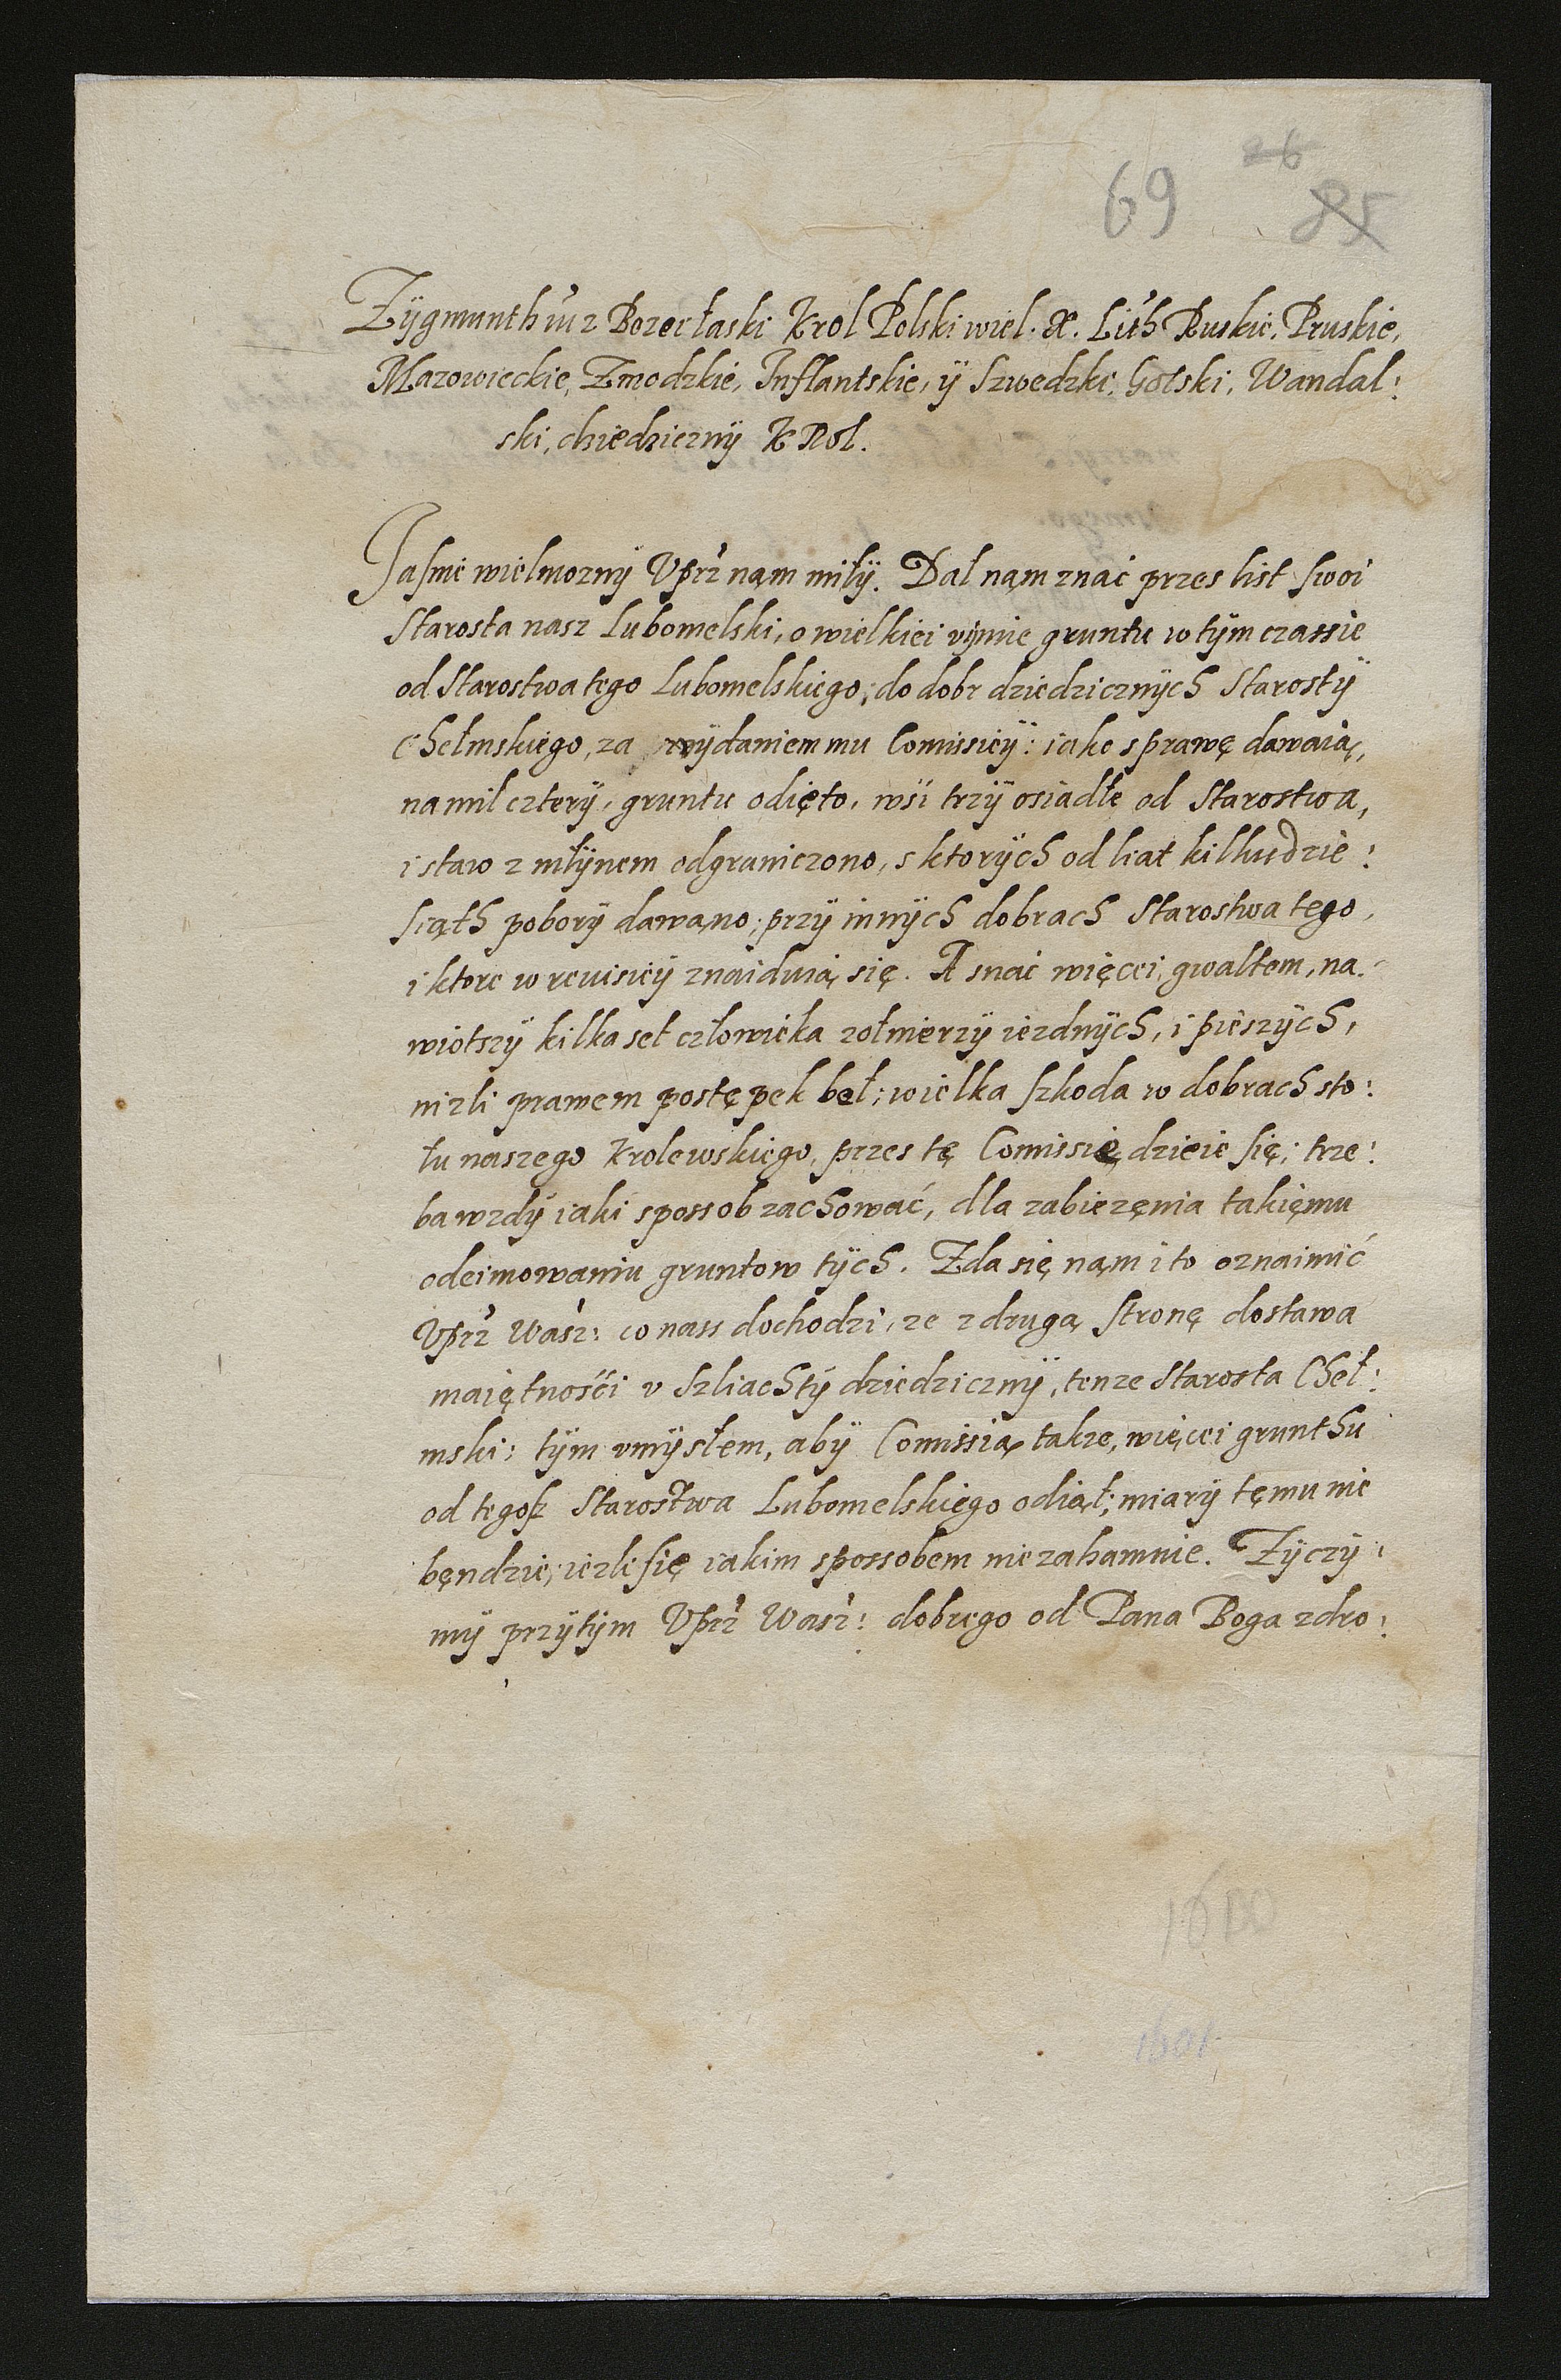 26
69 85
Zÿgmunth iii z Bozei łaski Krol Polski wiel. X. Lith Ruskie, Pruskie,
Mazowieckie, Zmodzkie, Inflantskie, ÿ Szwedzki, Gotski, Wandal:
ski, dziedzicznÿ KRol.
Jasnie wielmoznÿ Uprz nąm miłÿ. Dal nąm znać przes list swoi
Starosta nasz Lubomelski, o wielkiei vÿmie gruntu w tÿm czassie
od Starostwa tego Lubomelskiego, do dobr dziedzicznÿch Starostÿ
Chełmskiego, za wÿdaniem mu Comissieÿ: iako sprawę dawaią,
na mil cztery, gruntu odięto, wsi trzÿ osiadłe od Starostwa,
i staw z młÿnem odgraniczono, s ktorÿch od liat kilkudzie:
siąth poborÿ dawano; przÿ innÿch dobrach Starostwa tego,
i ktore w reuisieÿ znaiduią się. A snać więcei, gwałtem, na:
wiotszÿ kilka set człowieka zołnierzÿ iezdnÿch, i pieszÿch,
nizli prawem postępek beł; wielka szkoda w dobrach sto:
łu naszego Krolewskiego, przes tę Comissię dzieie się; trze:
ba wzdÿ iaki spossob zachować, dla zabiezęnia takięmu
odeimowaniu gruntow tÿch. Zda się nąm i to oznaimić
Uprz Wasz: co nass dochodzi, ze z drugą stronę dostawa
maiętnośći v Szliachtÿ dziedzicznÿ, tenze Starosta Cheł:
mski: tÿm vmÿsłem, abÿ Comissią takze, więcei grunthu
od tegosz Starostwa Lubomelskiego odiął; miarÿ tęmu nie
bęndzie, iezli się iakim spossobem nie zahamuie. Zÿczÿ:
mÿ przÿtÿm Uprz Wasz: dobrego od Pana Boga zdro:
1600
1601